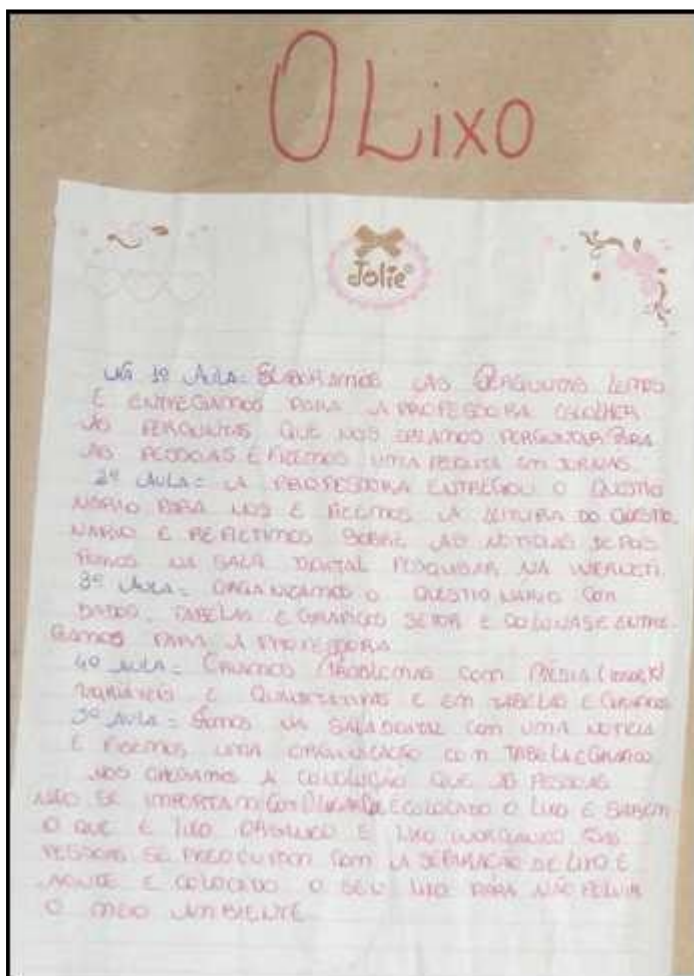 O LIXO
Jolie
NA 1ª AULA: ELABORAMOS AS PERGUNTAS
E ENTREGAMOS PARA A PROFESSORA ESCOLHER
AS PERGUNTAS QUE NOS PERGUNTAR PARA
AS PESSOAS E FIZEMOS UMA EM JORNAIS
2ª AULA: A PROFESSORA ENTREGOU O QUESTIO
NARIO PARA NOS E FIZEMOS A LEITURA DO QUESTIO
NARIO E REFLETIMOS SOBRE AS NOTICIAS DEPOIS
FOMOS NA SALA DIGITAL PESQUISAR NA
3ª AULA: ORGANIZAMOS O QUESTIONARIO COM
DADOS, TABELAS E GRAFICOS SETOR E COLUNAS E ENTRE
GAMOS PARA A PROFESSORA
4ª AULA: CRIAMOS PROBLEMAS COM MÉDIA
VARIAVEIS E E EM TABELAS E GRAFICOS
5ª AULA: FOMOS NA SALA DIGITAL COM UMA NOTICIA
E FIZEMOS UMA ORGANIZAÇÃO COM TABELA E GRAFICO
NOS CHEGAMOS A QUE AS PESSOAS
NÃO SE COM E COLOCADO O LIXO E SABEM
O QUE E LIXO ORGANICO E LIXO INORGANICO
PESSOAS SE COM A SEPARAÇÃO DE LIXO E
E COLOCADO O SEU LIXO PARA NÃO POLUIR
O MEIO AMBIENTE